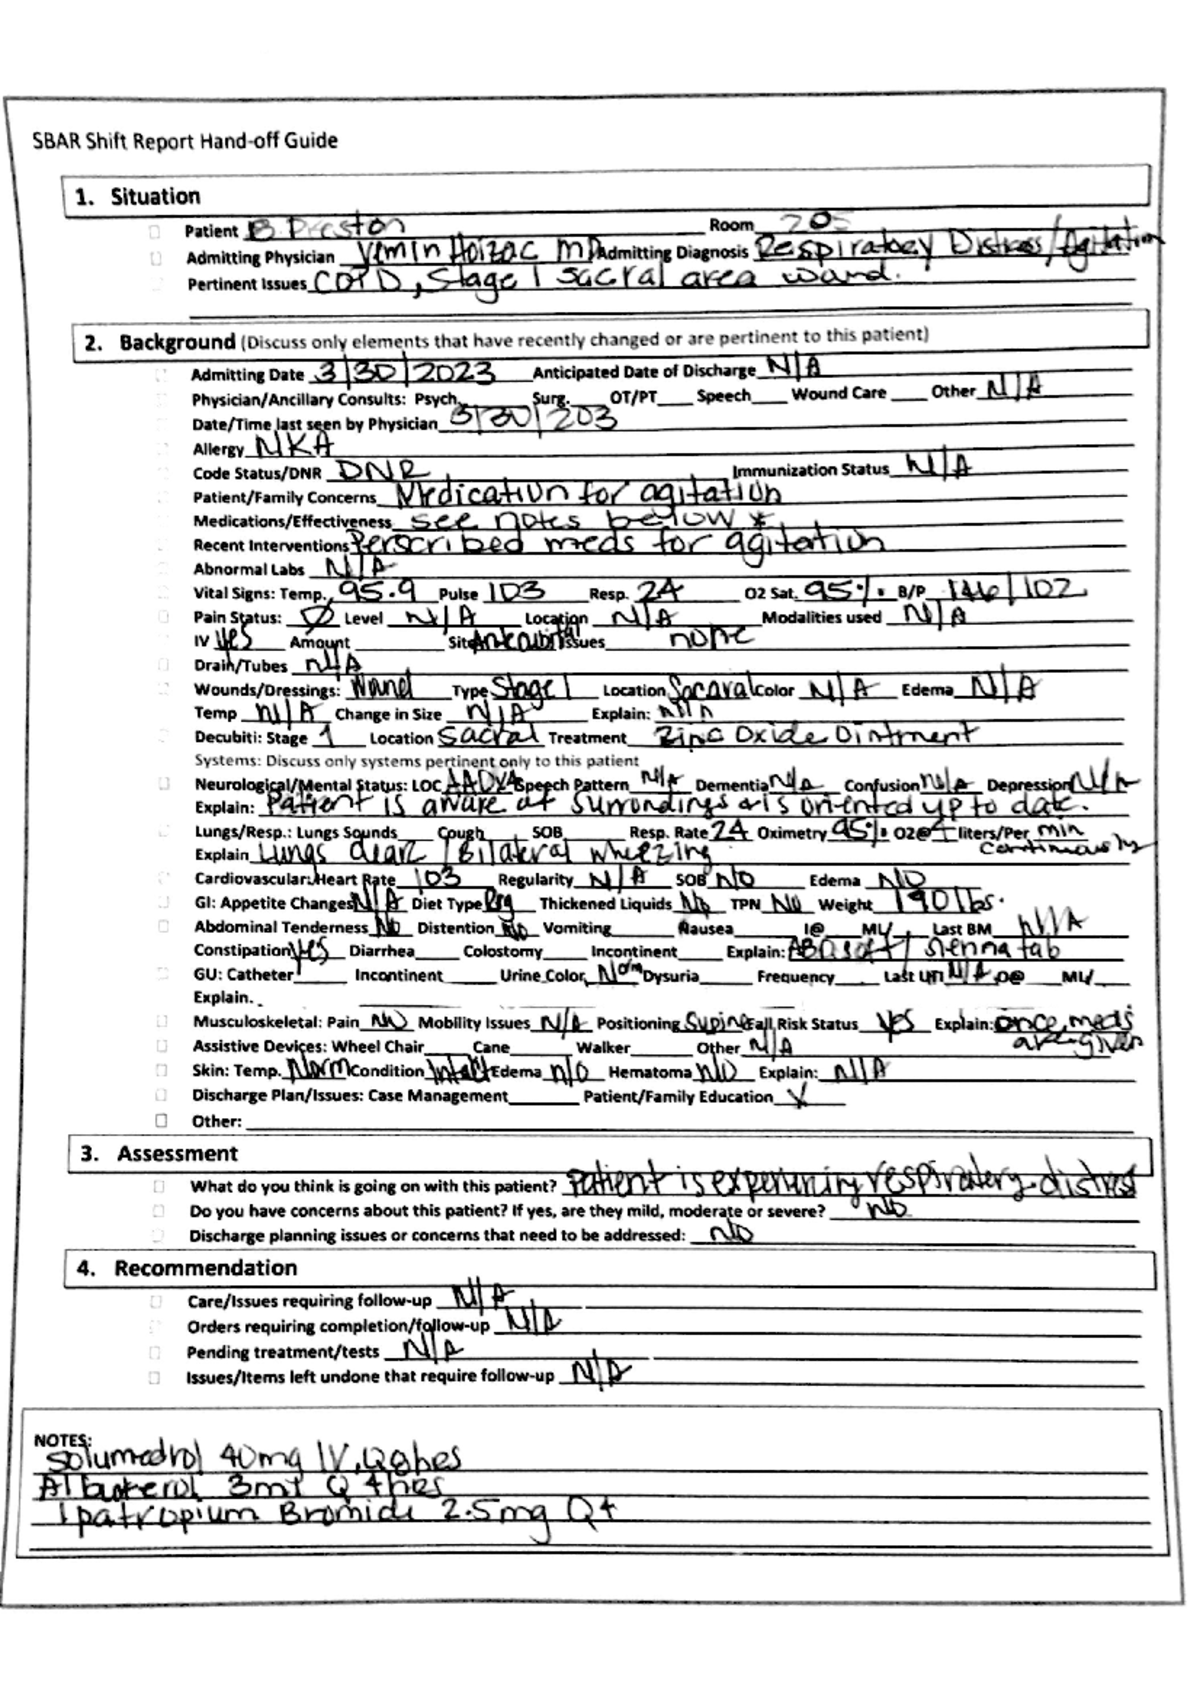 SBAR Shift Report Hand-off Guide
1. Situation
Patient B Preston Room 205
Admitting Physician MD Admitting Diagnosis Respiratory Distress/Agitation
Pertinent Issues COPD, Stage 1 sacral area wound.
2. Background (Discuss only elements that have recently changed or are pertinent to this patient)
Admitting Date 3|30|2023 Anticipated Date of Discharge N|A
Physician/Ancillary Consults: Psych. Surg. OT/PT Speech Wound Care Other N|A
Date/Time last seen by Physician 3/30/203
Allergy NKA
Code Status/DNR DNR Immunization Status N|A
Patient/Family Concerns Medication for agitation
Medications/Effectiveness see notes below *
Recent Interventions Perscribed meds for agitation
Abnormal Labs N|A
Vital Signs: Temp. 95.9 Pulse 103 Resp. 24 O2 Sat. 95% B/P 146/102
Pain Status: Ø Level N|A Location N|A Modalities used N|A
IV yes Amount Site Issues none
Drain/Tubes N/A
Wounds/Dressings: Wound Type Stage 1 Location Color N|A Edema N|A
Temp N|A Change in Size N|A Explain: N/A
Decubiti: Stage 1 Location Sacral Treatment Zinc Oxide Ointment
Systems: Discuss only systems pertinent only to this patient
Neurological/Mental Status: LOC Speech Pattern N/A Dementia N/A Confusion N/A Depression N/A
Explain: Patient is aware of surrondings & is oriented up to date.
Lungs/Resp.: Lungs Sounds Cough SOB Resp. Rate 24 Oximetry 95% O2@ 4 liters/Per min
Explain Lungs clear / Bilateral wheezing continuously
Cardiovascular: Heart Rate 103 Regularity N|A SOB NO Edema NO
GI: Appetite Changes N|A Diet Type Reg Thickened Liquids No TPN NO Weight 190 lbs.
Abdominal Tenderness NO Distention NO Vomiting Nausea I@ ML Last BM N/A
Constipation yes Diarrhea Colostomy Incontinent Explain: tab
GU: Catheter Incontinent Urine Color Norm Dysuria Frequency Last UTI N/A O@ ML
Explain.
Musculoskeletal: Pain NO Mobility Issues N/A Positioning Supine Fall Risk Status yes Explain: once meds
Assistive Devices: Wheel Chair Cane Walker Other N|A are given
Skin: Temp. Norm Condition Intact Edema n/o Hematoma n/o Explain: N|A
Discharge Plan/Issues: Case Management Patient/Family Education X
Other:
3. Assessment
What do you think is going on with this patient? Patient is experiening respiratory distress
Do you have concerns about this patient? If yes, are they mild, moderate or severe? NO
Discharge planning issues or concerns that need to be addressed: NO
4. Recommendation
Care/Issues requiring follow-up N|A
Orders requiring completion/follow-up N|A
Pending treatment/tests N|A
Issues/Items left undone that require follow-up N|A
NOTES:
Solumedrol 40mg IV, Q8hes
Albuterol Q 4hes
Ipatropium Bromide 2.5mg Q4